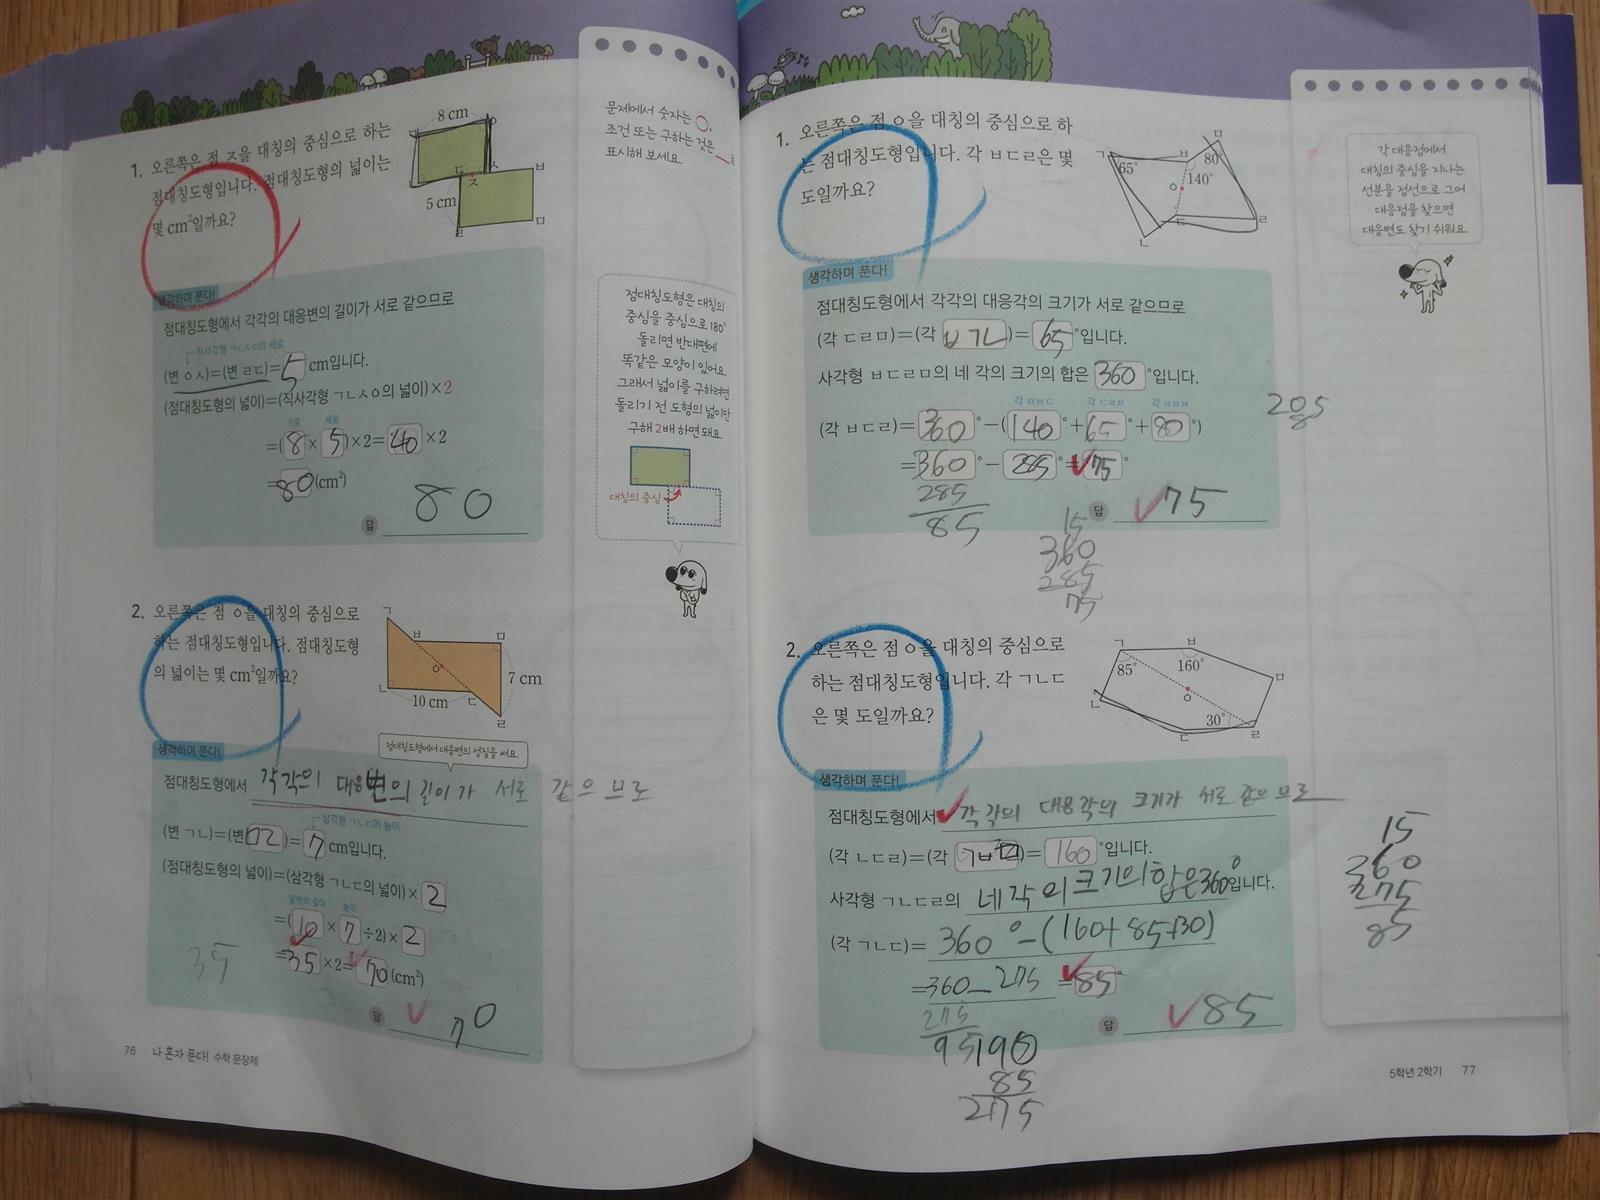 1. 오른쪽은 점 ㅈ을 대칭의 중심으로 하는
점대칭도형입니다. 점대칭도형의 넓이는
몇 cm²일까요?
8 cm
ㄷ ㅅ ㅂ
ㅈ
5 cm
ㄹ ㅁ
생각하며 푼다!
점대칭도형에서 각각의 대응변의 길이가 서로 같으므로
직사각형 ㄱㄴㅅㅇ의 세로
(변 ㅇㅅ)=(변 ㄹㄷ)=5 cm입니다.
(점대칭도형의 넓이)=(직사각형 ㄱㄴㅅㅇ의 넓이)×2
가로 세로
=(8×5)×2=40×2
=80(cm²)
답 80
문제에서 숫자는 ○,
조건 또는 구하는 것은 __로
표시해 보세요.
점대칭도형은 대칭의
중심을 중심으로 180°
돌리면 반대편에
똑같은 모양이 있어요.
그래서 넓이를 구하려면
돌리기 전 도형의 넓이만
구해 2배 하면 돼요.
대칭의 중심
2. 오른쪽은 점 ㅇ을 대칭의 중심으로
하는 점대칭도형입니다. 점대칭도형
의 넓이는 몇 cm²일까요?
ㄱ
ㅂ ㅁ
ㅇ
7 cm
ㄴ 10 cm ㄷ
ㄹ
점대칭도형에서 대응변의 성질을 써요.
생각하며 푼다!
점대칭도형에서 각각의 대응변의 길이가 서로 같으므로
삼각형 ㄱㄴㄷ의 높이
(변 ㄱㄴ)=(변 ㅁㄹ)=7 cm입니다.
(점대칭도형의 넓이)=(삼각형 ㄱㄴㄷ의 넓이)×2
밑변의 길이 높이
=(10×7÷2)×2
=35×2=70(cm²)
35
답 70
76 나 혼자 푼다! 수학 문장제
1. 오른쪽은 점 ㅇ을 대칭의 중심으로 하
는 점대칭도형입니다. 각 ㅂㄷㄹ은 몇
도일까요?
ㄱ ㅂ ㅁ
65° 80°
ㅇ 140°
ㄴ ㄷ ㄹ
생각하며 푼다!
점대칭도형에서 각각의 대응각의 크기가 서로 같으므로
(각 ㄷㄹㅁ)=(각 ㅂㄱㄴ)=65°입니다.
사각형 ㅂㄷㄹㅁ의 네 각의 크기의 합은 360°입니다.
각 ㅁㅂㄷ 각 ㄷㄹㅁ 각 ㄹㅁㅂ
(각 ㅂㄷㄹ)=360°-(140°+65°+80°)
=360°-285°=75°
285
85
답 75
15
360
285
75
205
8
각 대응점에서
대칭의 중심을 지나는
선분을 점선으로 그어
대응점을 찾으면
대응변도 찾기 쉬워요.
2. 오른쪽은 점 ㅇ을 대칭의 중심으로
하는 점대칭도형입니다. 각 ㄱㄴㄷ
은 몇 도일까요?
ㄱ ㅂ
85° 160° ㅁ
ㅇ
ㄴ 30°
ㄷ ㄹ
생각하며 푼다!
점대칭도형에서 각각의 대응각의 크기가 서로 같으므로
(각 ㄴㄷㄹ)=(각 ㄱㅂㅁ)=160°입니다.
사각형 ㄱㄴㄷㄹ의 네 각의 크기의 합은 360°입니다.
(각 ㄱㄴㄷ)=360°-(160+85+30)
=360-275=85°
275
95
190
85
275
답 85
15
360
275
85
5학년 2학기 77